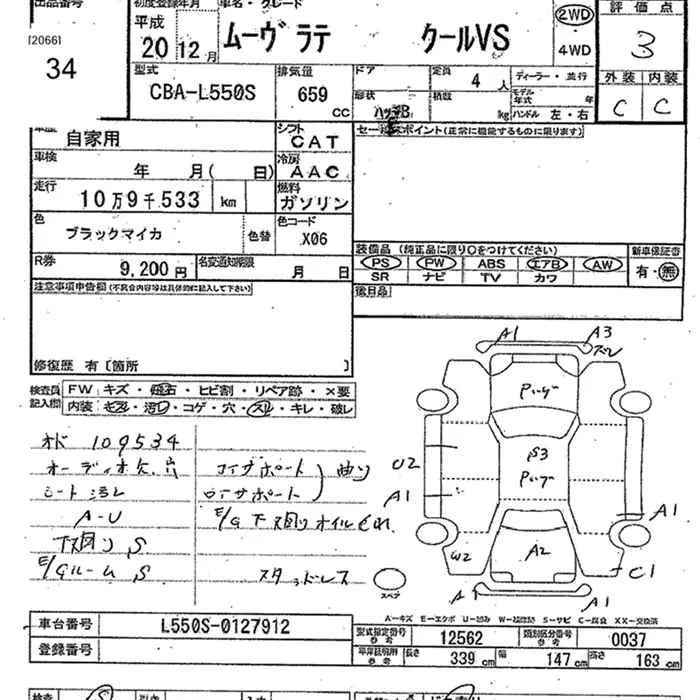 出品番号
[2066]
34
初度登録年月
平成
20 12月
車名・グレード
ムーヴラテ クールVS
2WD
4WD
評価点
3
型式
CBA-L550S
排気量
659
CC
ドア
形状
定員 4 人
積載 kg
ディーラー・並行
モデル年式 年
ハンドル 左・右
外装 内装
C C
車歴 自家用
シフト
CAT
セールスポイント(正常に機能するものに限ります)
車検 年 月( 日)
冷房
AAC
走行
10万9千533 km
燃料
ガソリン
色
ブラックマイカ
色替
色コード
X06
R券
9,200円
名変通知期限 月 日
装備品(純正品に限り○をつけてください)
PS PW ABS エアB AW
SR ナビ TV カワ
新車保証書
有・無
後日品
注意事項申告欄(不具合内容等は具体的に記入して下さい)
修復歴 有〔箇所 〕
検査員
記入欄
FW キズ・飛石・ヒビ割・リペア跡・×要
内装 キズ・汚レ・コゲ・穴・スレ・キレ・破レ
オド 109534
シート汚レ
A-U
下廻り S
E/Gルーム S
コアサポート
ロアサポート
曲り
E/G 下廻りオイルもれ
スタッドレス
A1
A3
ズレ
S3
U2
A1
A1
W2
A2
C1
A1
A1
スペア
A-キズ E-エクボ U-凹み W-補修跡 S-サビ C-腐食 XX-交換済
車台番号 L550S-0127912
登録番号
型式指定番号
参考
12562
類別区分番号
参考
0037
車庫証明用
参考
長さ 339cm 幅 147cm 高さ 163cm